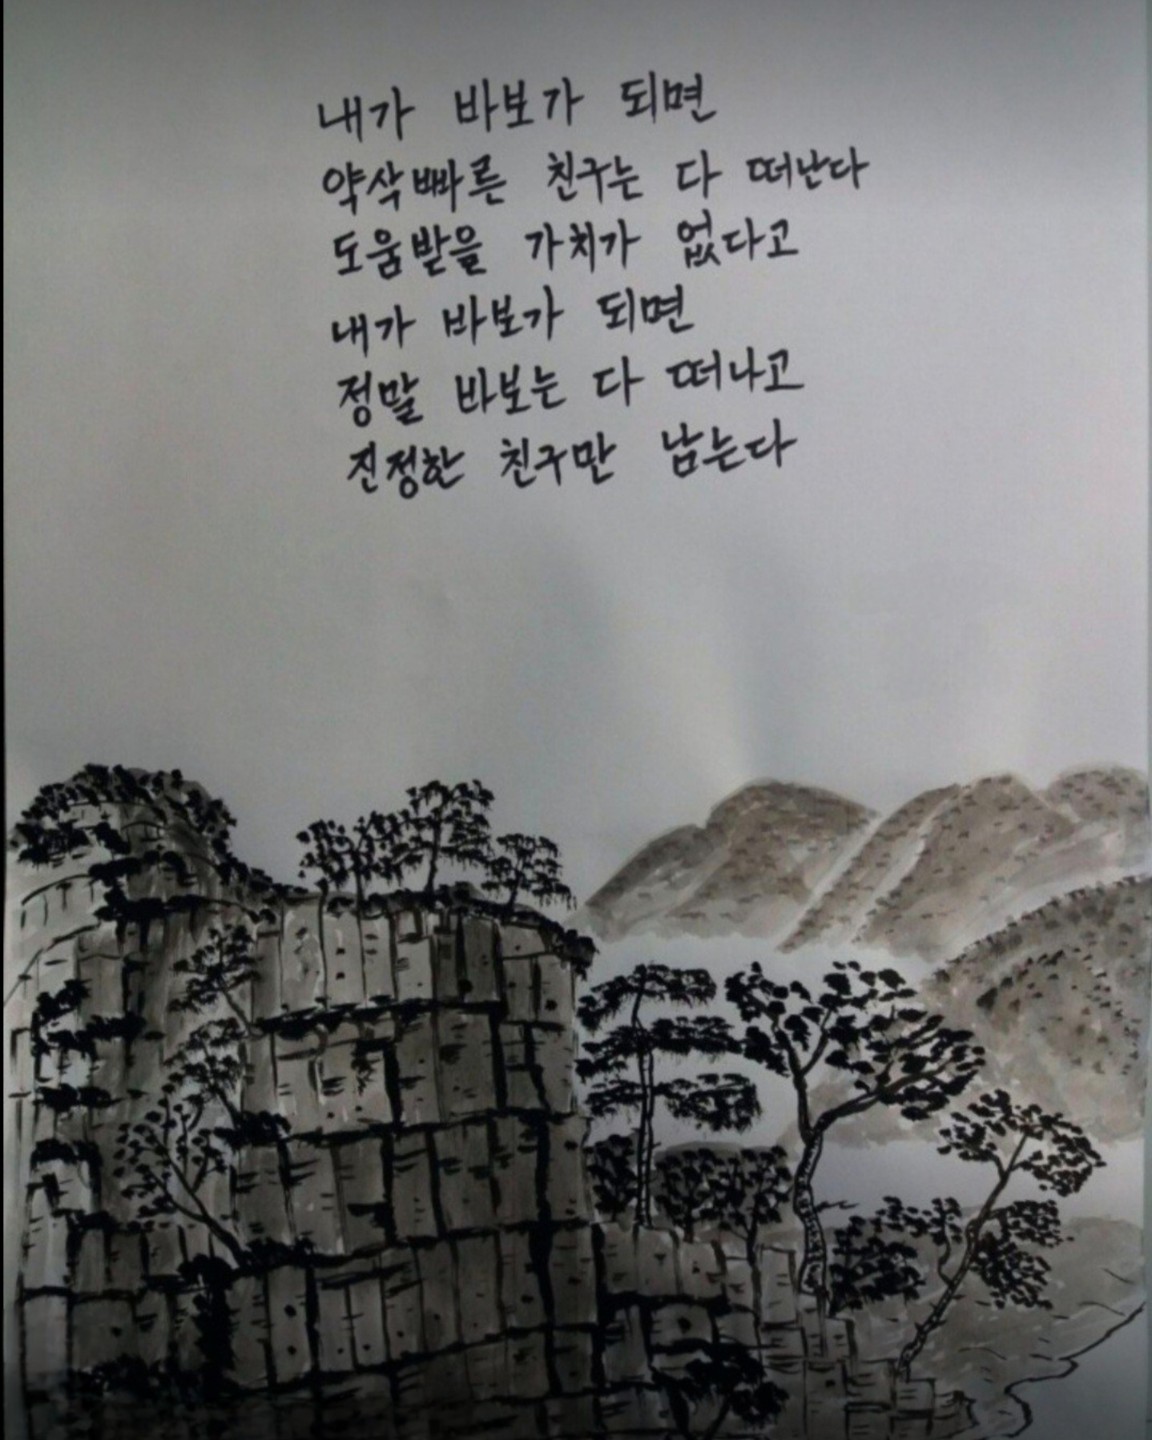 내가 바보가 되면
약삭빠른 친구는 다 떠난다
도움받을 가치가 없다고
내가 바보가 되면
정말 바보는 다 떠나고
진정한 친구만 남는다